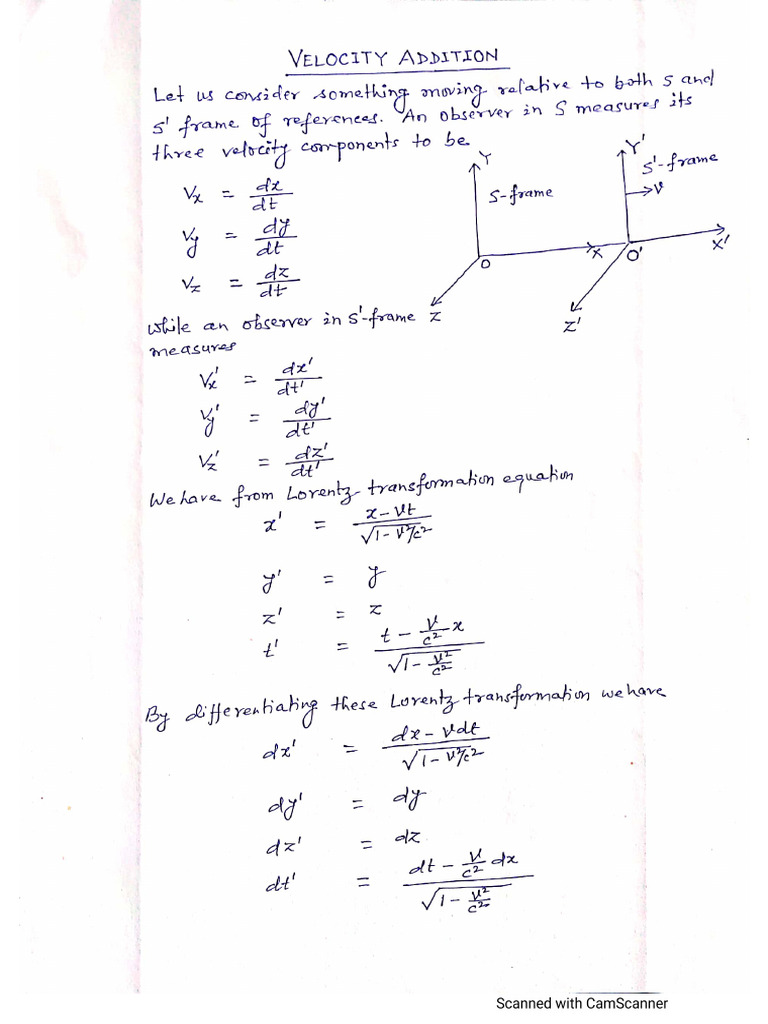 VELOCITY ADDITION
Let us consider something moving relative to both S and
S' frame of references. An observer in S measures its
three velocity components to be.
Vx = dx/dt
Vy = dy/dt
Vz = dz/dt
Y
S-frame
O
X
Z
Y'
S'-frame
V
O'
X'
Z'
while an observer in S'-frame
measures
Vx' = dx'/dt'
Vy' = dy'/dt'
Vz' = dz'/dt'
We have from Lorentz transformation equation
x' = (x - vt)/√(1 - v²/c²)
y' = y
z' = z
t' = (t - (v/c²) x)/√(1 - v²/c²)
By differentiating these Lorentz transformation we have
dx' = (dx - vdt)/√(1 - v²/c²)
dy' = dy
dz' = dz
dt' = (dt - (v/c²) dx)/√(1 - v²/c²)
Scanned with CamScanner